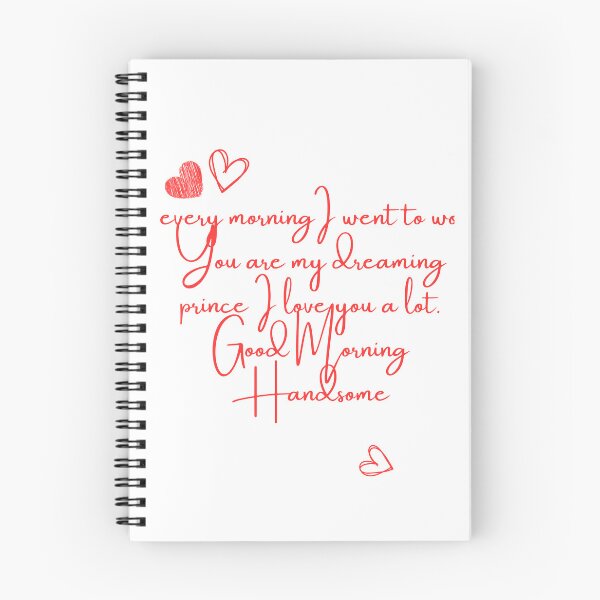 every morning I went to wo
You are my dreaming
prince I love you a lot.
Good Morning
Handsome